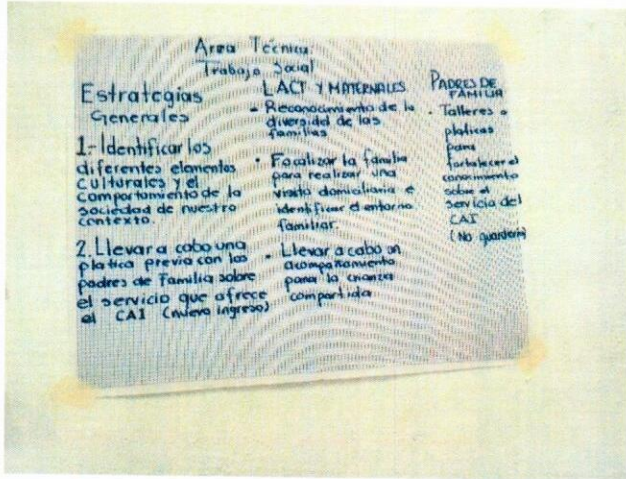 Area Técnica
Trabajo Social
Estrategias
Generales
1.- Identificar los
diferentes elementos
culturales y el
comportamiento de la
sociedad de nuestro
contexto.
2. Llevar a cabo una
platica previa con los
padres de Familia sobre
el servicio que ofrece
el CAI (nuevo ingreso)
LACT Y MATERNALES
- Reconocimiento de la
diversidad de las
familias
• Focalizar la familia
para realizar una
visita domiciliaria e
identificar el entorno
familiar.
• Llevar a cabo un
acompañamiento
para la crianza
compartida
PADRES DE
FAMILIA
- Talleres o
platicas
para
fortalecer el
conocimiento
sobre el
servicio del
CAI
(No guardería)